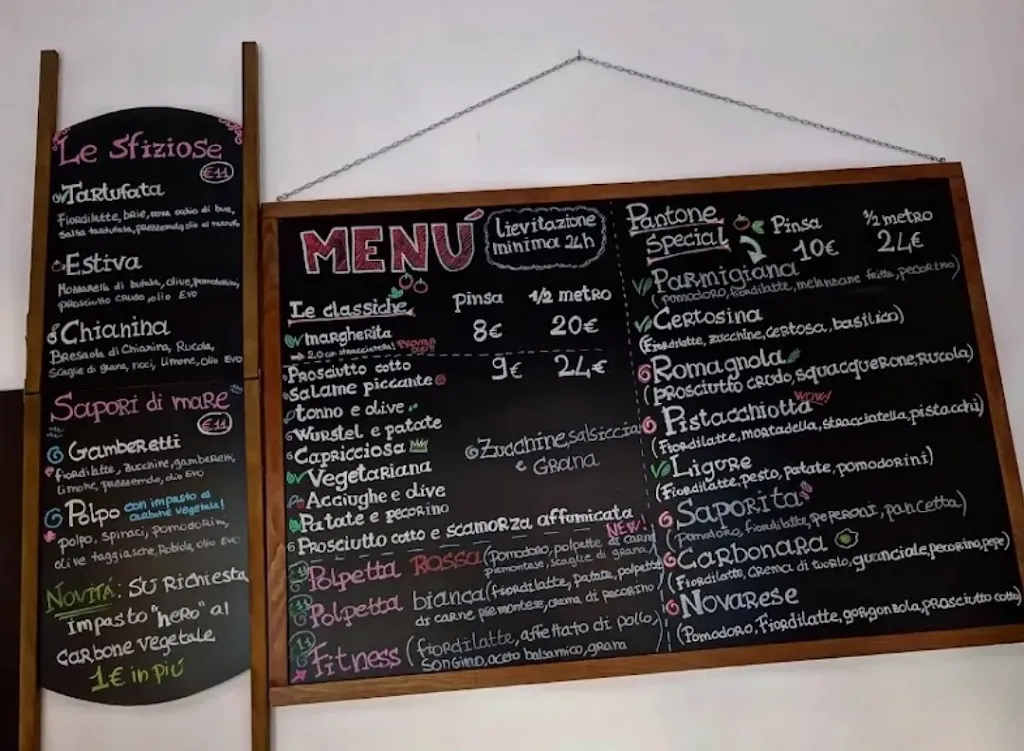 Le Sfiziose
€11
Tartufata
Fiordilatte, brie, uova occhio di bue,
salsa tartufata, prezzemolo, olio al tartufo
Estiva
Mozzarella di bufala, olive, pomodorini,
prosciutto crudo, olio Evo
Chianina
Bresaola di Chianina, Rucola,
scaglie di grana, noci, limone, olio Evo
Sapori di mare
€11
Gamberetti
Fiordilatte, zucchine, gamberetti,
limone, prezzemolo, olio Evo
Polpo con impasto al
carbone vegetale!
polpo, spinaci, pomodorini,
olive taggiasche, Robiola, olio Evo
Novitá: su richiesta
impasto "nero" al
carbone vegetale
1€ in più
MENÚ
lievitazione
minima 24h
Le classiche pinsa ½ metro
margherita 8€ 20€
2.0 con stracciatella! PROVALA OGGI!!
Prosciutto cotto 9€ 24€
Salame piccante
tonno e olive
Wurstel e patate
Capricciosa
Vegetariana
Acciughe e olive
Patate e pecorino
Prosciutto coto e scamorza affumicata
Zucchine, salsiccia
e Grana
NEW!
Polpetta Rossa (Pomodoro, polpette di carne
piemontese, scaglie di grana)
Polpetta bianca (fiordilatte, patate, polpette
di carne piemontese, crema di pecorino)
Fitness (fiordilatte, affettato di pollo,
songino, aceto balsamico, grana)
Pantone
Special
Pinsa ½ metro
10€ 24€
Parmigiana
(pomodoro, fiordilatte, melanzane fritte, pecorino)
Certosina
(Fiordilatte, zucchine, certosa, basilico)
Romagnola
(prosciutto crudo, squacquerone, rucola)
Pistacchiotta WOW!
(Fiordilatte, mortadella, stracciatella, pistacchi)
Ligure
(Fiordilatte, pesto, patate, pomodorini)
Saporita
(Pomodoro, fiordilatte, peperoni, pancetta)
Carbonara
(Fiordilatte, crema di tuorlo, guanciale, pecorino, pepe)
Novarese
(Pomodoro, Fiordilatte, gorgonzola, prosciutto cotto)